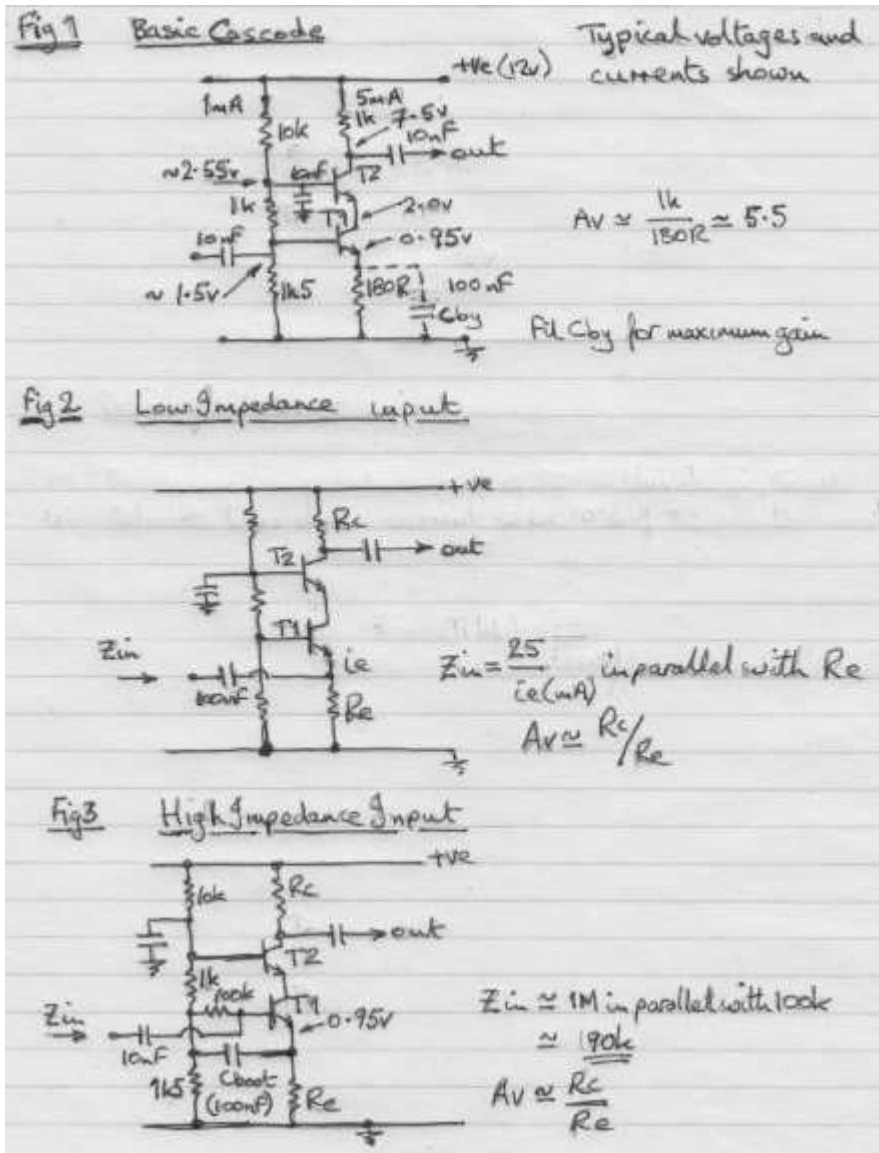 Fig 1 Basic Cascode
Typical voltages and
currents shown
+ve (12v)
1mA
5mA
10k
1k
7.5v
10nF
out
~2.55v
10nF
T2
1k
T1
2.0v
10nF
0.95v
Av ≃ 1k/180R ≃ 5.5
~ 1.5v
1k5
180R
100nF
Cby
Fit Cby for maximum gain
Fig 2 Low Impedance input
+ve
Rc
T2
out
T1
Zin
ie
100nF
Re
Zin = 25/ie(mA) in parallel with Re
Av ≃ Rc/Re
Fig 3 High Impedance Input
+ve
10k
Rc
out
T2
1k
100k
T1
Zin
0.95v
10nF
Cboot
(100nF)
1k5
Re
Zin ≃ 1M in parallel with 100k
≃ 90k
Av ≃ Rc/Re